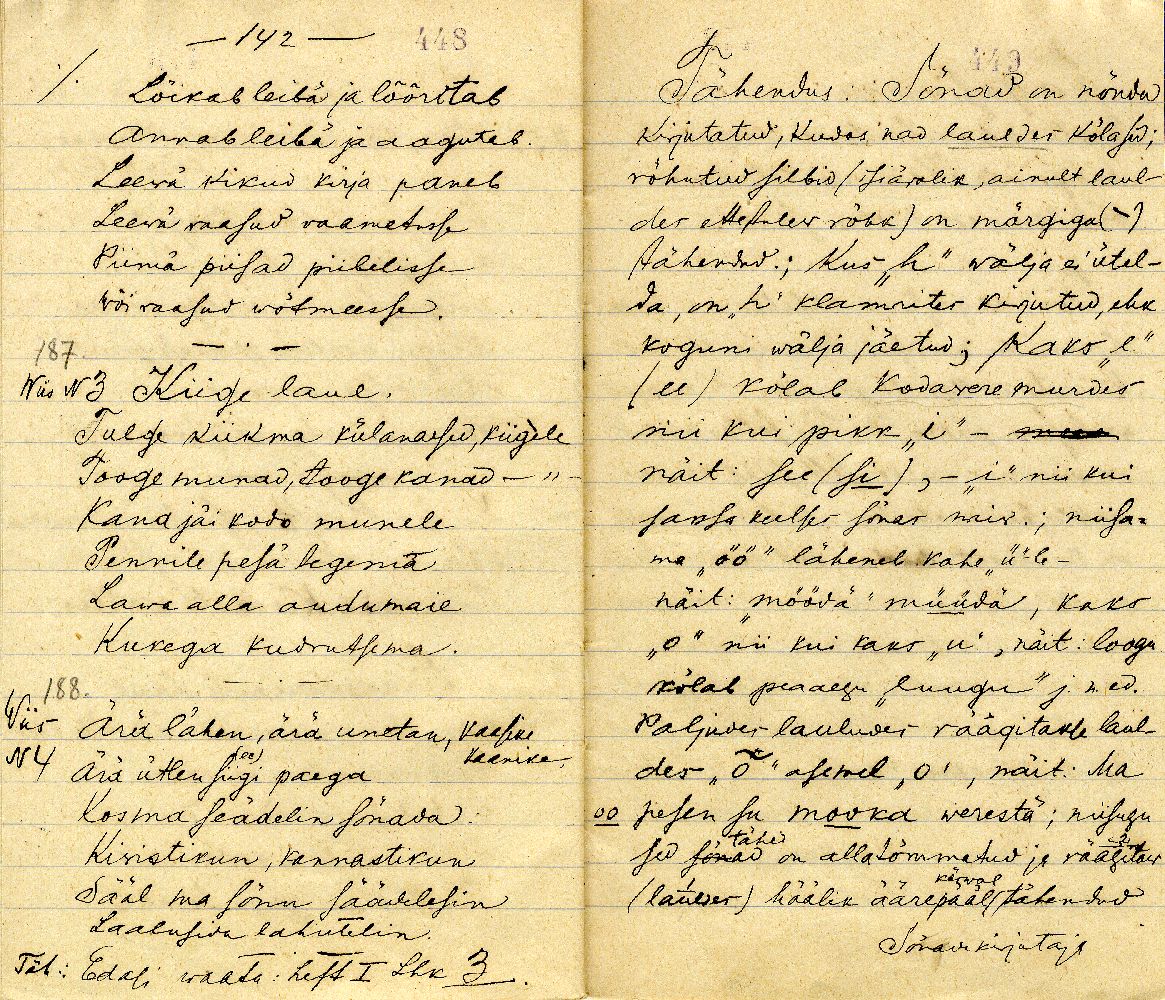 — 142 —
448
Lõikab leibä ja lõõritab
Annab leibä ja aagutab.
Leewä kikud kirja paneb
Leewä raasud raametusse
Piimä piisad piibelisse
Wõi raasud wõtmeesse.
187.
Wiis N 3 Kiige laul.
Tulge kiikma külanaesed, kiigele
Tooge munad, tooge kanad — " —
Kana jäi kodo munele
Pennile pesä tegemä
Lawa alla audumaie
Kukega kudrutsema.
188.
Wiis N 4
Ärä lähen, ärä unetan, kaasike kaanike,
Ärä ütlen siigi (ee) paega
Kos ma seädelin sõnada:
Kiwistikun, kannastikun
Sääl ma sõnu säädelesin
Laalusida lahutelin.
Täh: Edasi waata: heft I Lhk 3.
449
Tähendus: Sõnad on nõnda
kirjutatud, kudas nad lauldes kõlasid;
rõhutud silbid (isiäralik, ainult laul-
des ettetulew rõhk) on märgiga (-)
tähendud.; Kus „h" wälja ei ütel-
da, on „h" klamrites kirjutud, ehk
koguni wälja jäetud; Kaks „e"
(ee) kõlab Kodawere murdes
nii kui pikk „i" —
näit: see (si), — „i" nii kui
saksa keelses sõnas wir.; niisa-
ma „öö" läheneb kahe „ü"-le —
näit: „möödä" müüdä, kaks
„o" nii kui kaks „u", näit: looga
kõlab peaaegu „luugu" j. n. ed.
Paljudes lauludes räägitakse laul-
des „õ" asemel „o", näit: Ma
oo pesen su mooka werestä; niisugu
sed sõnad tähed on allatõmmatud ja räägitaw
(lauldes) häälik äärepääl kõrwal tähendud
Sõnadekirjutaja